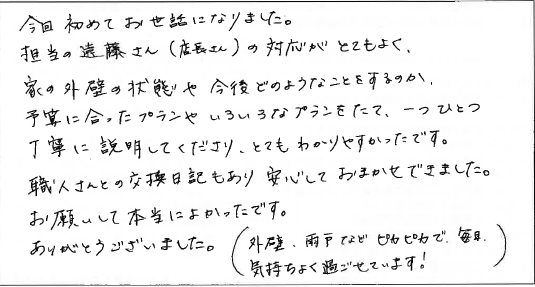 今回 初めてお世話になりました。
担当の遠藤さん(店長さん)の対応がとてもよく、
家の外壁の状態や今後どのようなことをするのか、
予算に合ったプランやいろいろなプランをたて、一つひとつ
丁寧に説明してくださり、とてもわかりやすかったです。
職人さんとの交換日記もあり安心しておまかせできました。
お願いして本当によかったです。
ありがとうございました。
(外壁、雨戸などピカピカで、毎日、
気持ちよく過ごせています!)